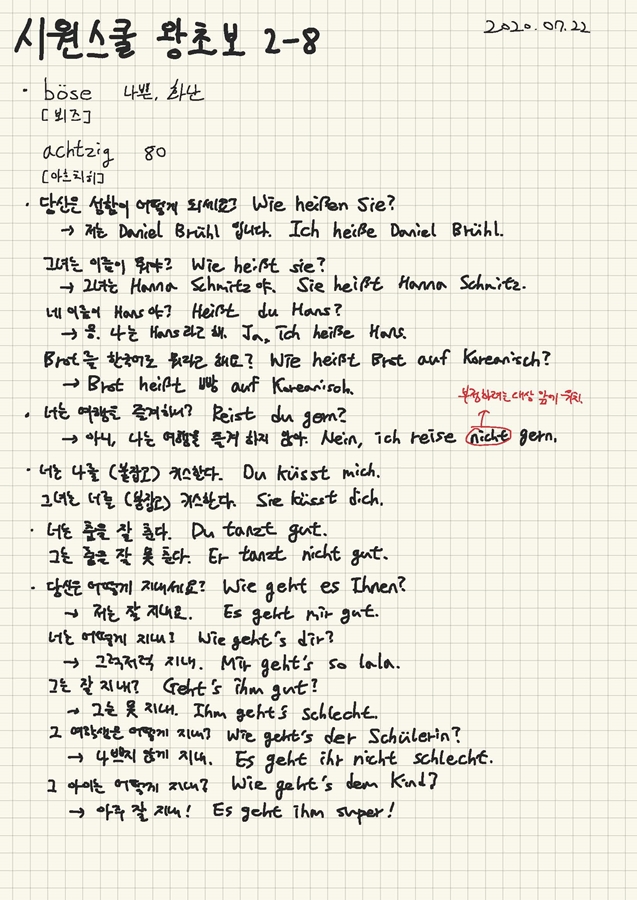 시원스쿨 왕초보 2-8
2020.07.22
· böse 나쁜, 화난
[뵈즈]
achtzig 80
[아흐치히]
· 당신은 성함이 어떻게 되세요? Wie heißen Sie?
→ 저는 Daniel Brühl 입니다. Ich heiße Daniel Brühl.
그녀는 이름이 뭐야? Wie heißt sie?
→ 그녀는 Hanna Schmitz야. Sie heißt Hanna Schmitz.
네 이름이 Hans야? Heißt du Hans?
→ 응. 나는 Hans라고 해. Ja, ich heiße Hans.
Brot을 한국어로 뭐라고 해요? Wie heißt Brot auf Koreanisch?
→ Brot heißt 빵 auf Koreanisch.
부정하려는 대상 앞에 위치.
· 너는 여행을 즐겨하니? Reist du gern?
→ 아니, 나는 여행을 즐겨 하지 않아. Nein, ich reise nicht gern.
· 너는 나를 (붙잡고) 키스한다. Du küsst mich.
그녀는 너를 (붙잡고) 키스한다. Sie küsst dich.
· 너는 춤을 잘 춘다. Du tanzt gut.
그는 춤을 잘 못 춘다. Er tanzt nicht gut.
· 당신은 어떻게 지내세요? Wie geht es Ihnen?
→ 저는 잘 지내요. Es geht mir gut.
너는 어떻게 지내? Wie geht's dir?
→ 그럭저럭 지내. Mir geht's so lala.
그는 잘 지내? Geht's ihm gut?
→ 그는 못 지내. Ihm geht's schlecht.
그 여학생은 어떻게 지내? Wie geht's der Schülerin?
→ 나쁘지 않게 지내. Es geht ihr nicht schlecht.
그 아이는 어떻게 지내? Wie geht's dem Kind?
→ 아주 잘 지내! Es geht ihm super!